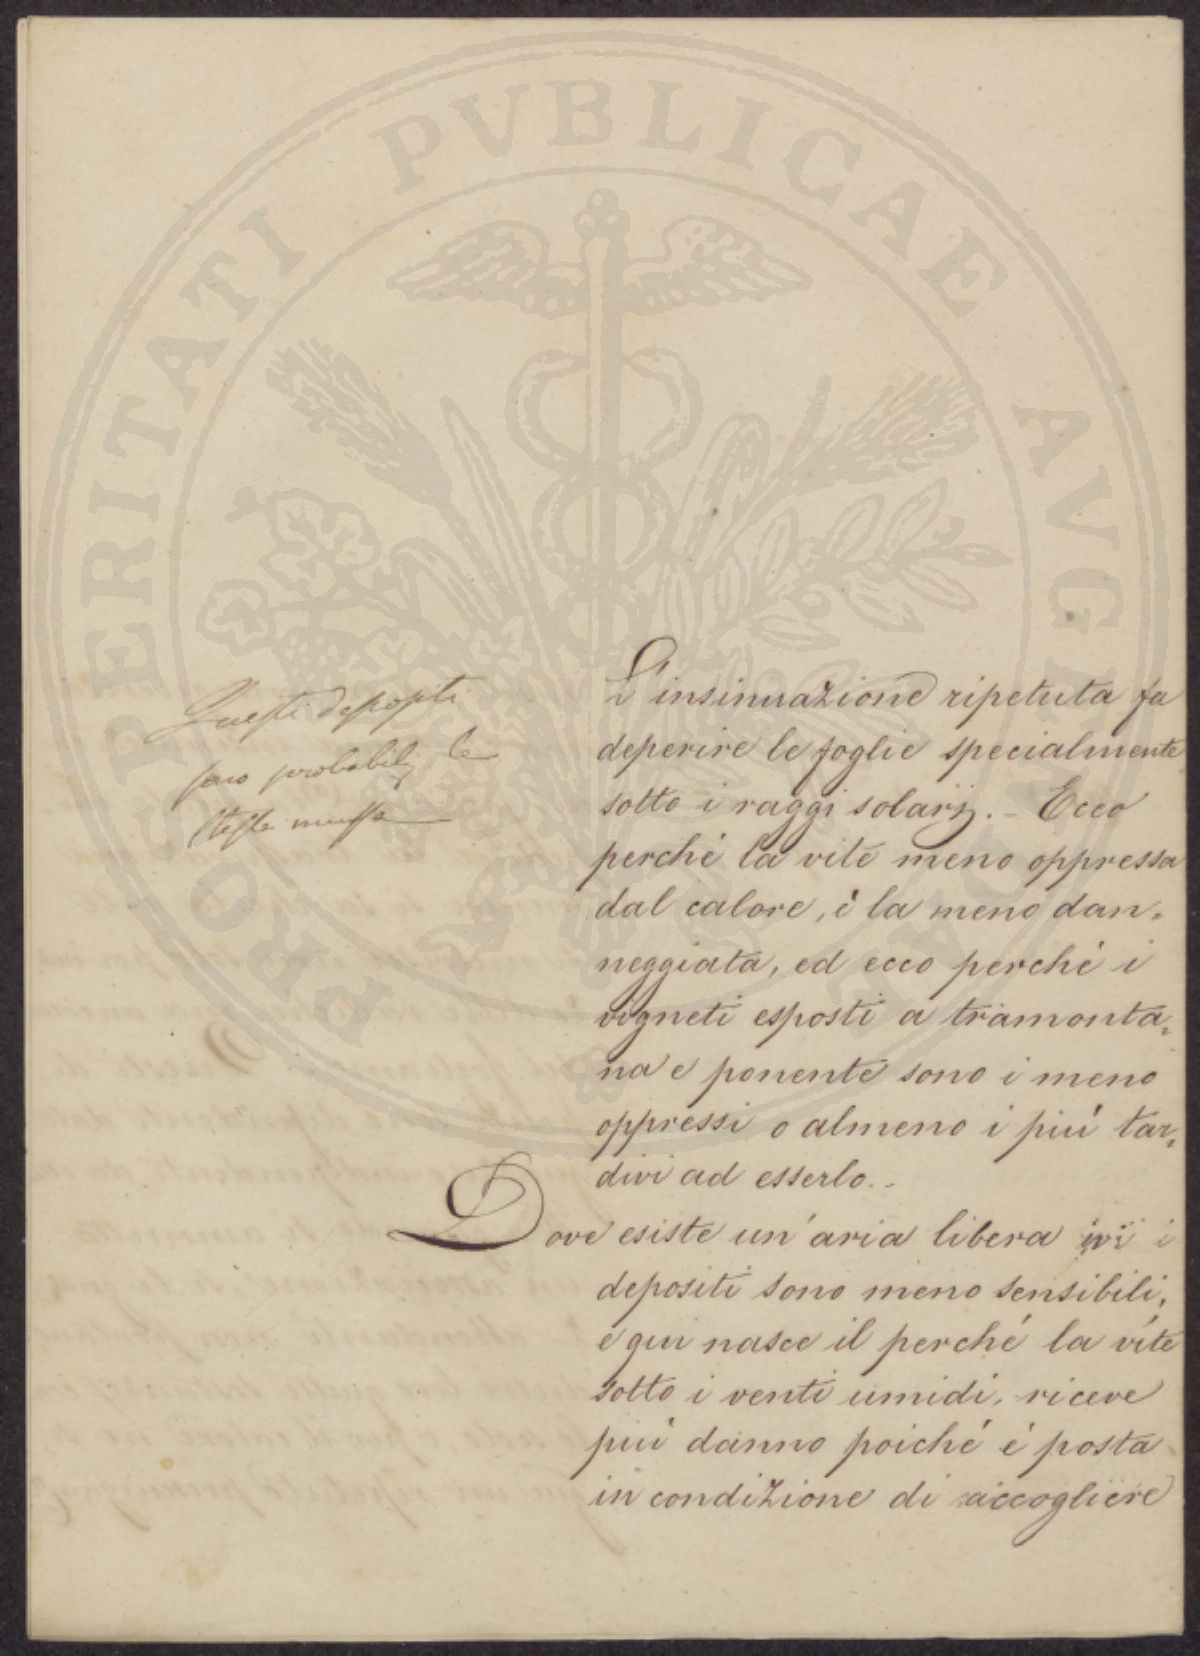 PROSPERITATI PVBLICAE AVGENDAE
Questi depositi
sono probabil. le
stesse muffe
L'insinuazione ripetuta fa
deperire le foglie specialmente
sotto i raggi solarj. - Ecco
perché la vite meno oppressa
dal calore, è la meno dan,
neggiata, ed ecco perché i
vigneti esposti a tramonta,
na e ponente sono i meno
oppressi o almeno i piú tar,
divi ad esserlo. -
Dove esiste un'aria libera ivi i
depositi sono meno sensibili,
e qui nasce il perché la vite
sotto i venti umidi, riceve
piú danno poiché é posta
in condizione di accogliere